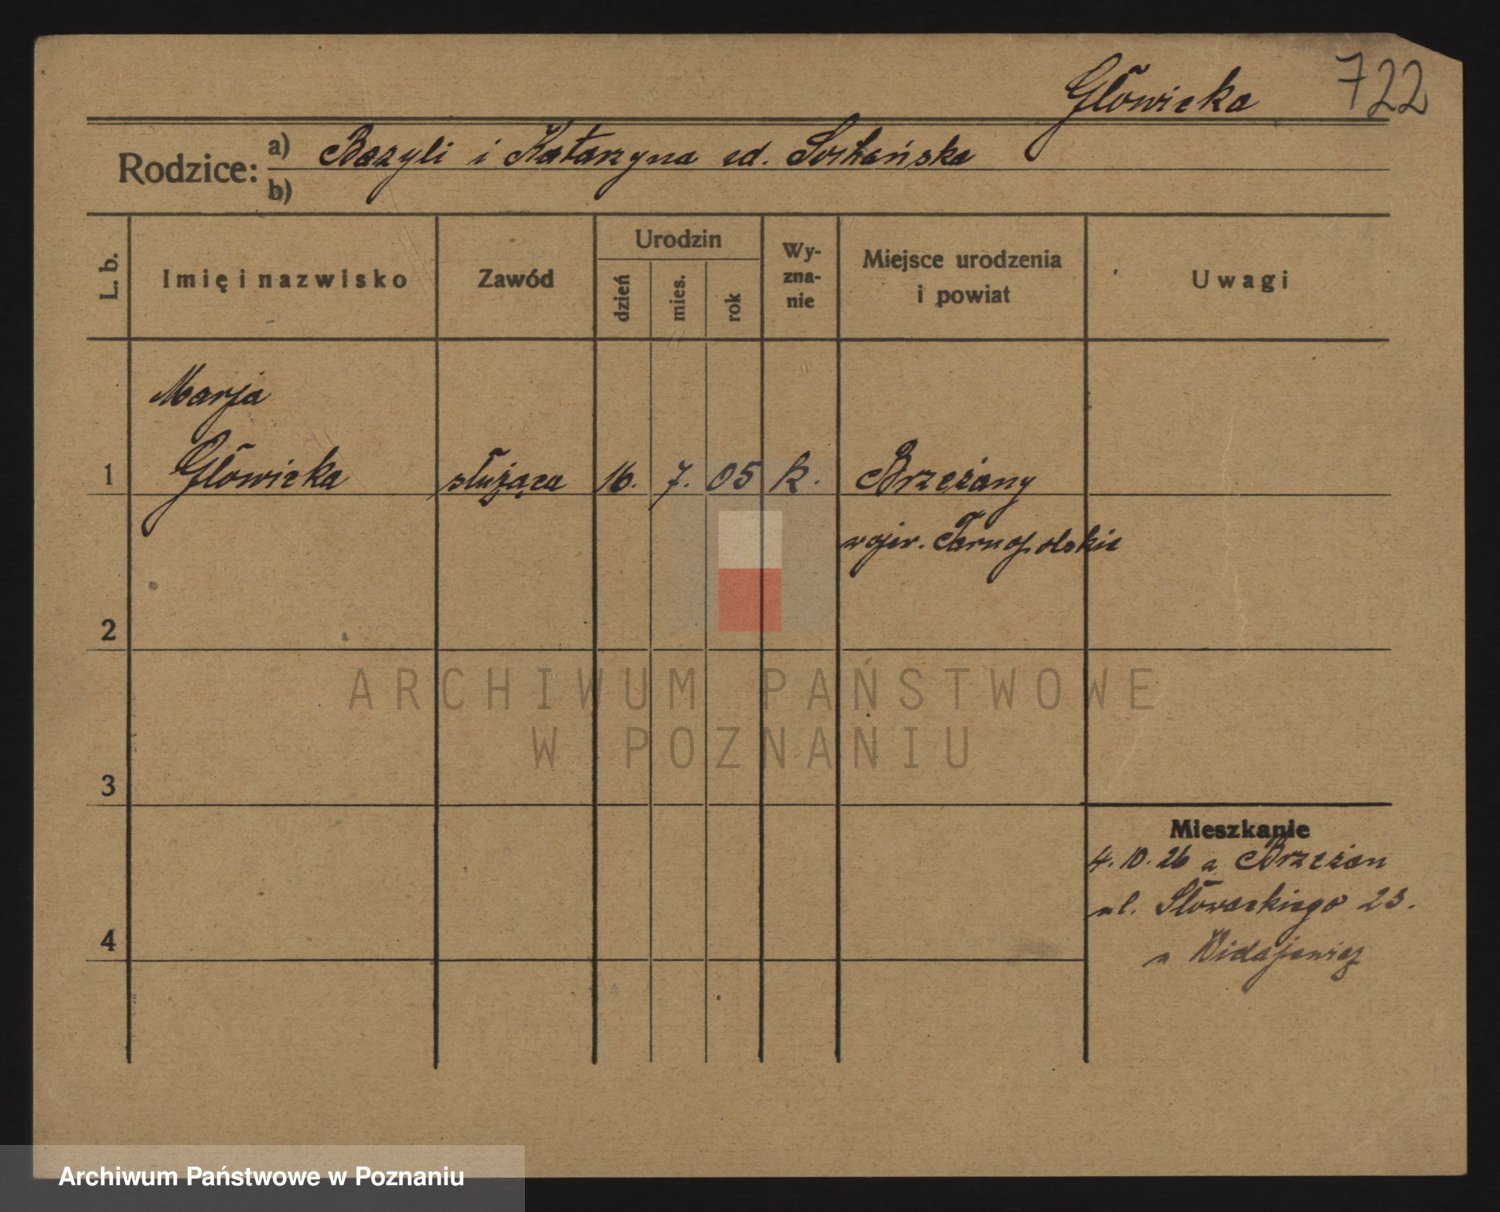 Głowicka 722
Rodzice: a) Bazyli i Katarzyna zd.
b)
L. b. Imię i nazwisko Zawód Urodzin dzień mies. rok Wy-zna-nie Miejsce urodzenia i powiat Uwagi
Marja
1 Głowicka służąca 16. 7. 05 k. Brzeżany
wojew. Tarnopolskie
2
ARCHIWUM PAŃSTWOWE
W POZNANIU
3
Mieszkanie
4. 10. 26 z Brzeżan
ul. Słowackiego 23.
4
Archiwum Państwowe w Poznaniu